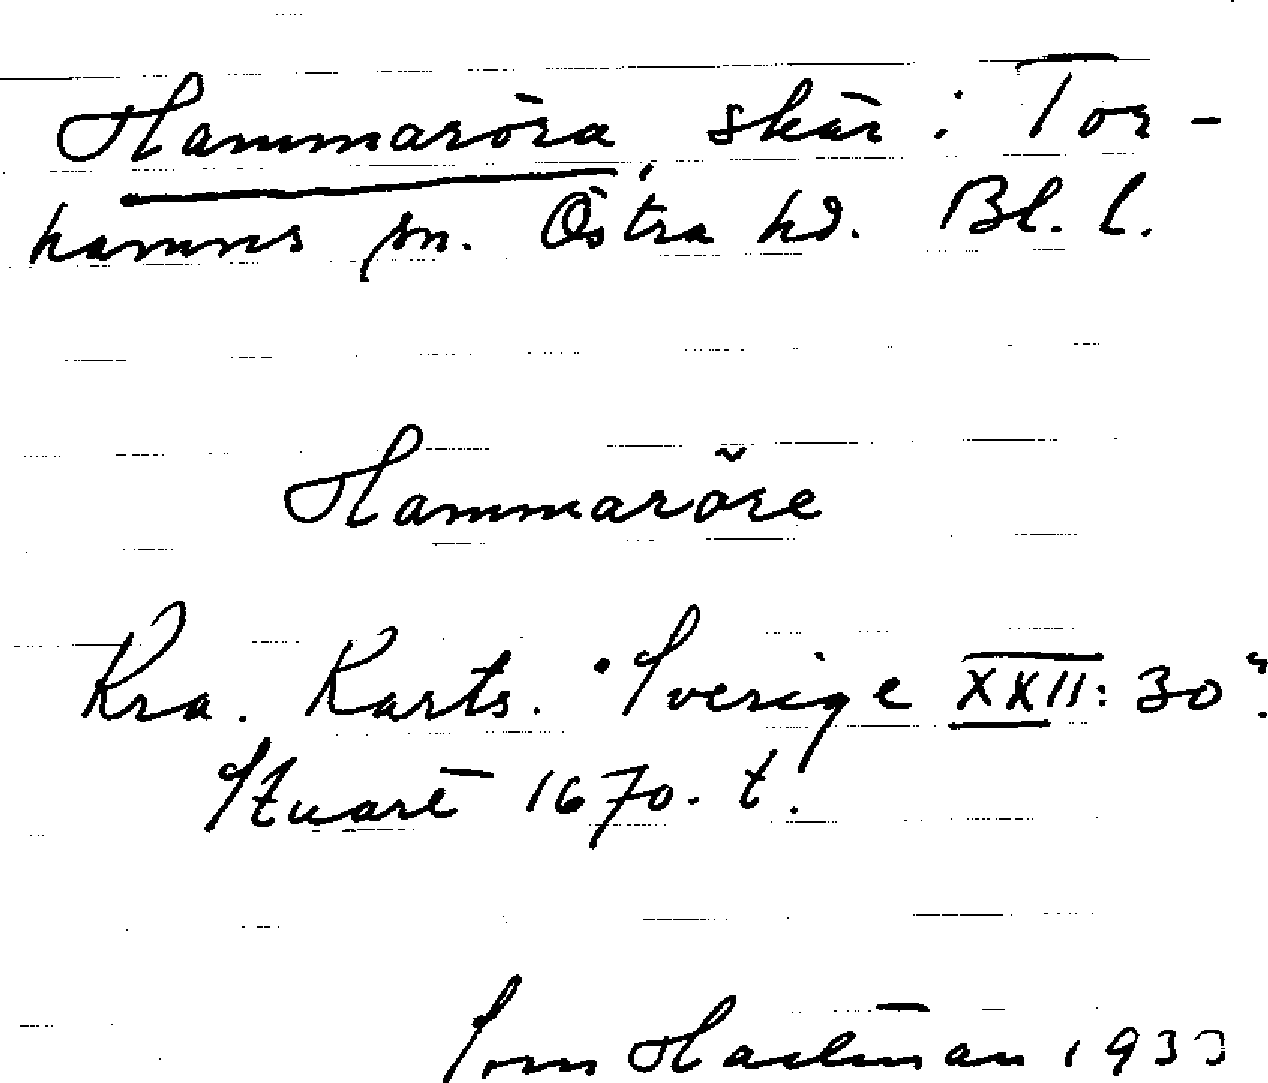 Hammaröra, skär i Tor-
hamns sn. Östra hd. Bl. l.
Hammarŏre
Kra. Karts. "Sverige XXII: 30".
Stuart 1670. t.
1933